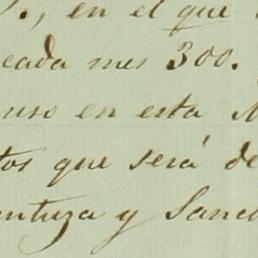 , en el que
cada mes 300.
uso en esta
tos que será de
y Sanc